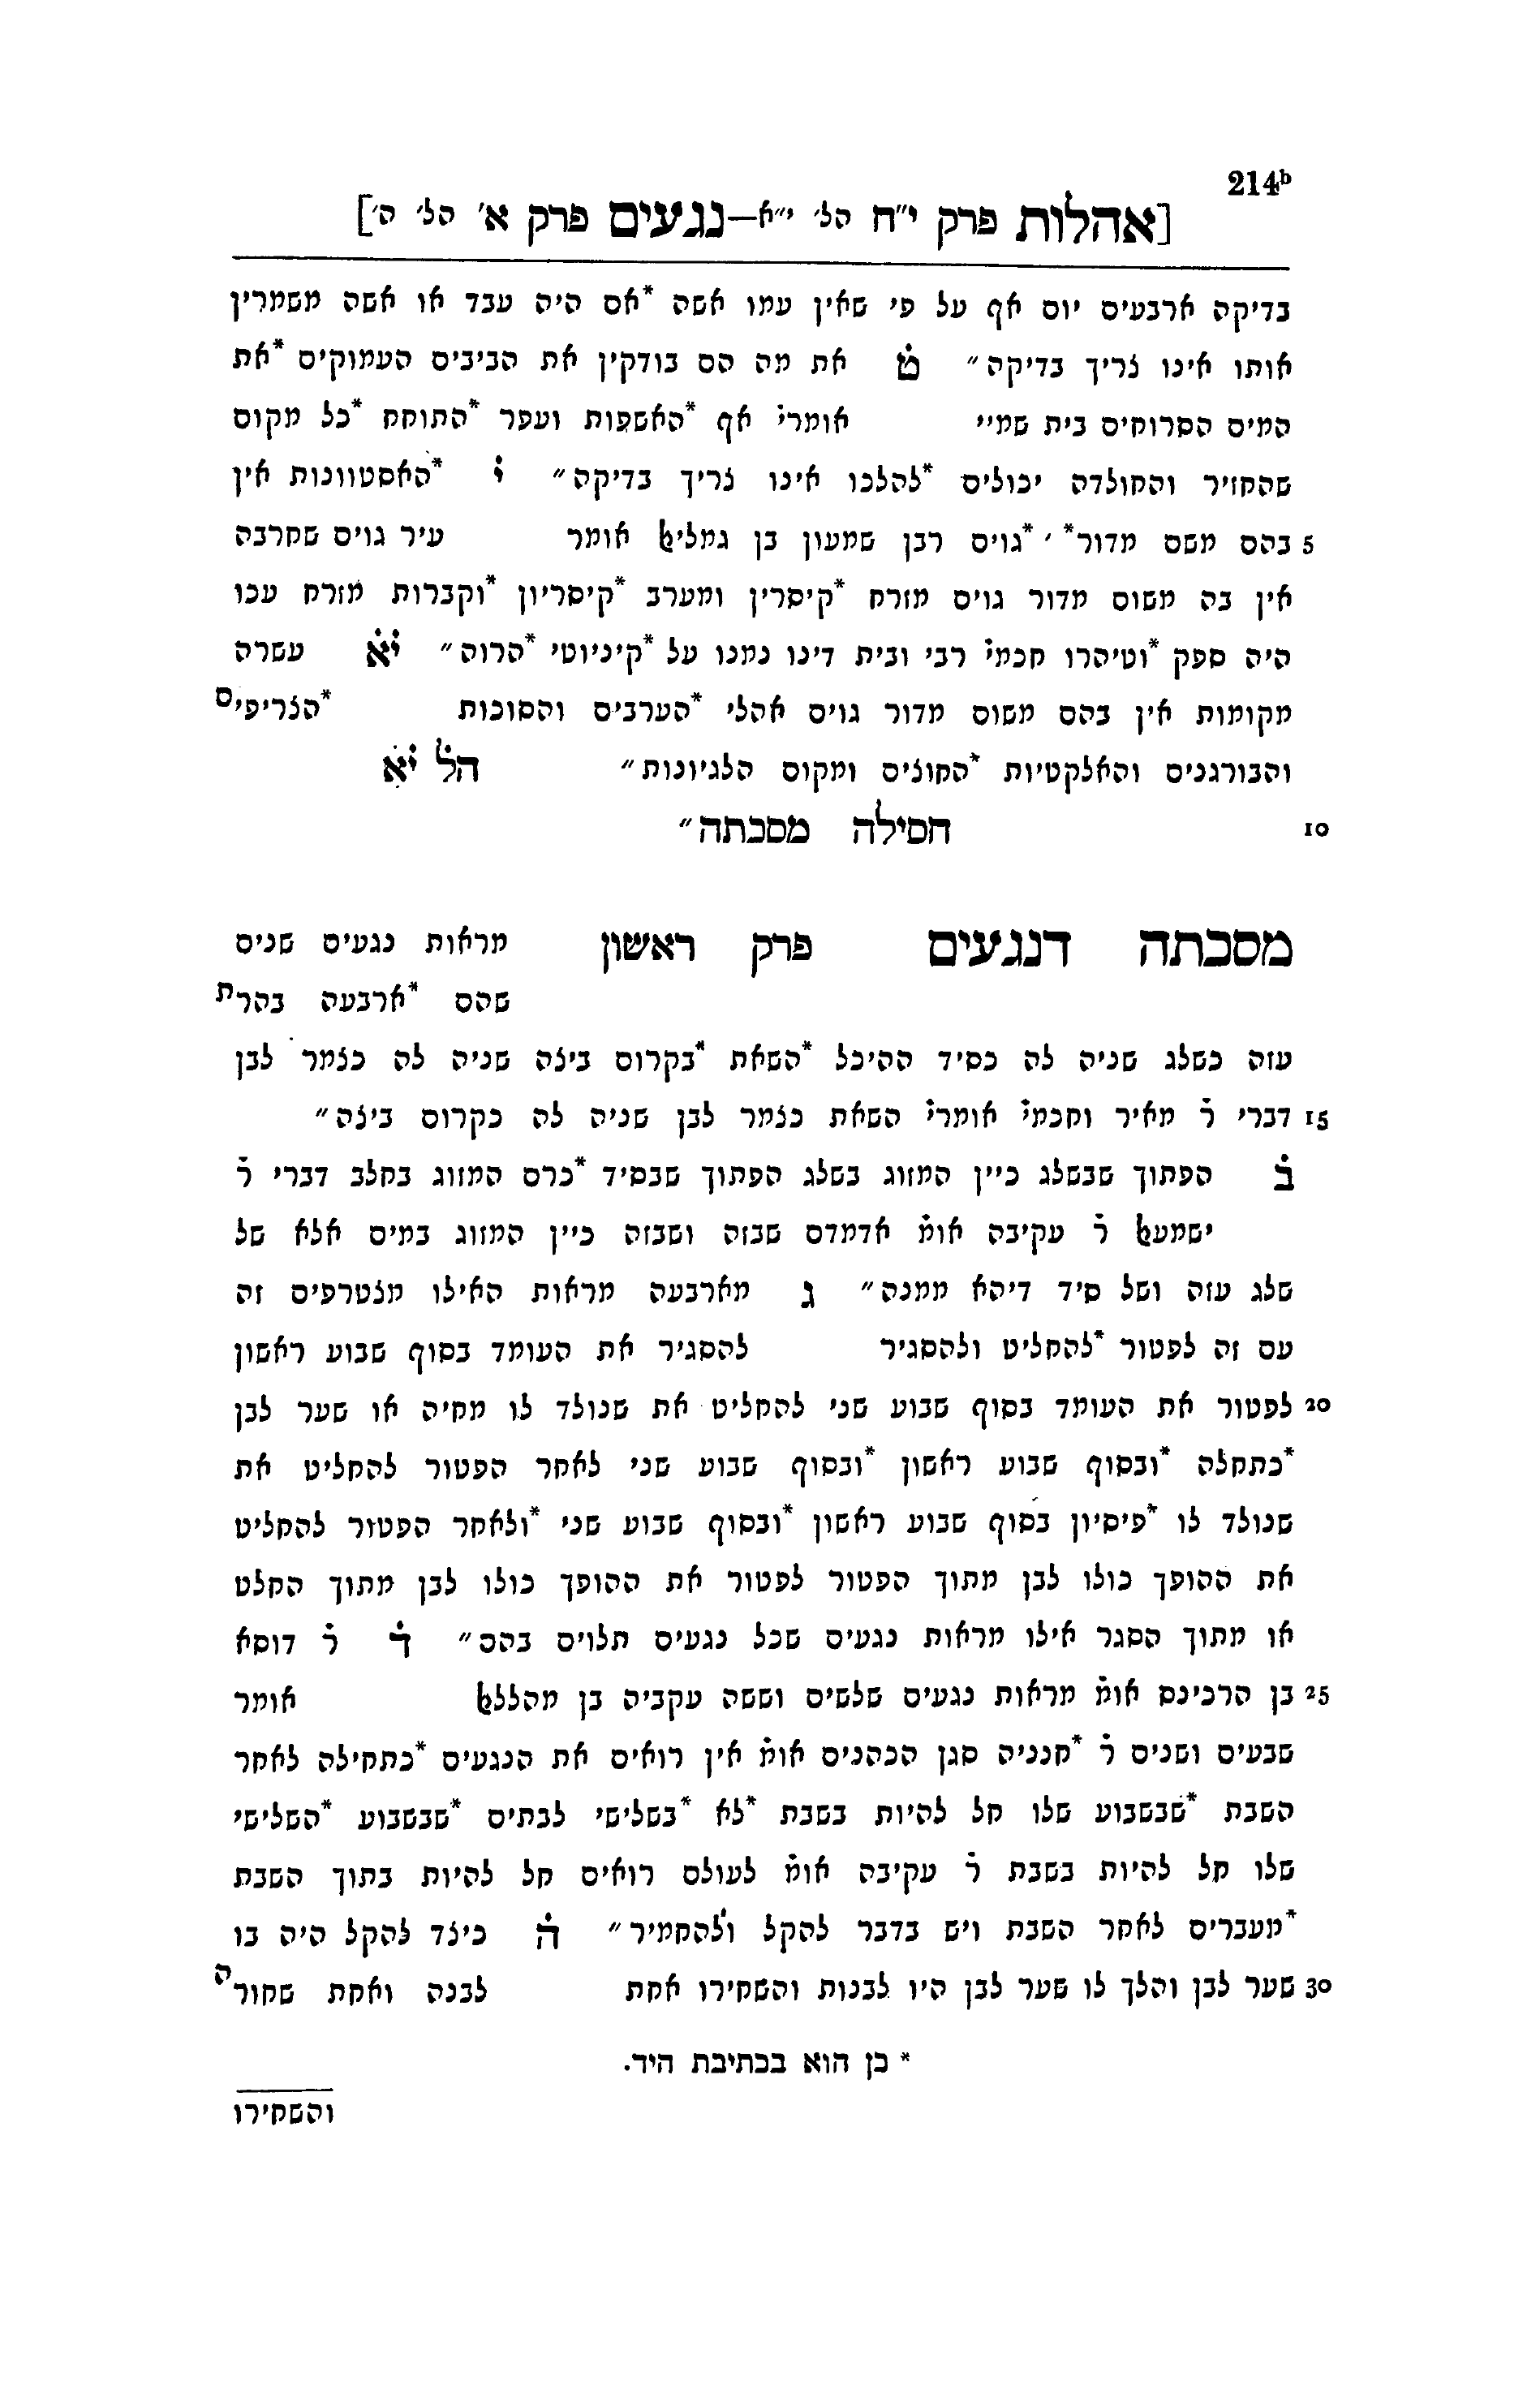 214b
[אהלות פרק י״ח הל׳ י״א–נגעים פרק א׳ הל׳ ה׳]
בדיקה ארבעים יום אף על פי שאין עמו אשה *אם היה עבד או אשה משמרין
אותו אינו צריך בדיקה״ ט את מה הם בודקין את הביבים העמוקים *את
המים הסרוחים בית שמיי אומרי׳ אף *האשפות ועפר *התוחח *כל מקום
שהחזיר והחולדה יכולים *להלכו אינו צריך בדיקה״ י *האסטוונות אין
5 בהם משם מדור* ׳ *גוים רבן שמעון בן גמליאל אומר עיר גוים שחרבה
אין בה משום מדור גוים מזרח *קיסרין ומערב *קיסריון *וקברות מזרח עכו
היה ספק *וטיהרו חכמי׳ רבי ובית דינו נמנו על *קיניוטי *הרוה״ יא עשרה
מקומות אין בהם משום מדור גוים אהלי *הערבים והסוכות *הצריפים
והבורגנים והאלקטיות *החוצים ומקום הלגיונות״ הל יא
10 חסילה מסכתה״
מסכתה דנגעים פרק ראשון מראות נגעים שנים
שהם *ארבעה בהרת
עזה כשלג שניה לה כסיד ההיכל *השאת *בקרום ביצה שניה לה כצמר לבן
15 דברי ר׳ מאיר וחכמי׳ אומרי׳ השאת כצמר לבן שניה לה כקרום ביצה״
ב הפתוך שבשלג כיין המזוג בשלג הפתוך שבסיד *כרם המזוג בחלב דברי ר׳
ישמעאל ר׳ עקיבה אומ׳ אדמדם שבזה ושבזה כיין המזוג במים אלא של
שלג עזה ושל סיד דיהא ממנה״ ג מארבעה מראות האילו מצטרפים זה
עם זה לפטור *להחליט ולהסגיר להסגיר את העומד בסוף שבוע ראשון
20 לפטור את העומד בסוף שבוע שני להחליט את שנולד לו מחיה או שער לבן
*כתחלה *ובסוף שבוע ראשון *ובסוף שבוע שני לאחר הפטור להחליט את
שנולד לו *פיסיון בסוף שבוע ראשון *ובסוף שבוע שני *ולאחר הפטור להחליט
את ההופך כולו לבן מתוך הפטור לפטור את ההופך כולו לבן מתוך החלט
או מתוך הסגר אילו מראות נגעים שכל נגעים תלוים בהם״ ד ר׳ דוסא
25 בן הרכינס אומ׳ מראות נגעים שלשים וששה עקביה בן מהללאל אומר
שבעים ושנים ר׳ *חנניה סגן הכהנים אומ׳ אין רואים את הנגעים *כתחילה לאחר
השבת *שבשבוע שלו חל להיות בשבת *לא *בשלישי לבתים *שבשבוע *השלישי
שלו חל להיות בשבת ר׳ עקיבה אומ׳ לעולם רואים חל להיות בתוך השבת
*מעברים לאחר השבת ויש בדבר להקל ולהחמיר״ ה כיצד להקל היה בו
30 שער לבן והלך לו שער לבן היו לבנות והשחירו אחת לבנה ואחת שחורה
* כן הוא בכתיבת היד.
והשחירו